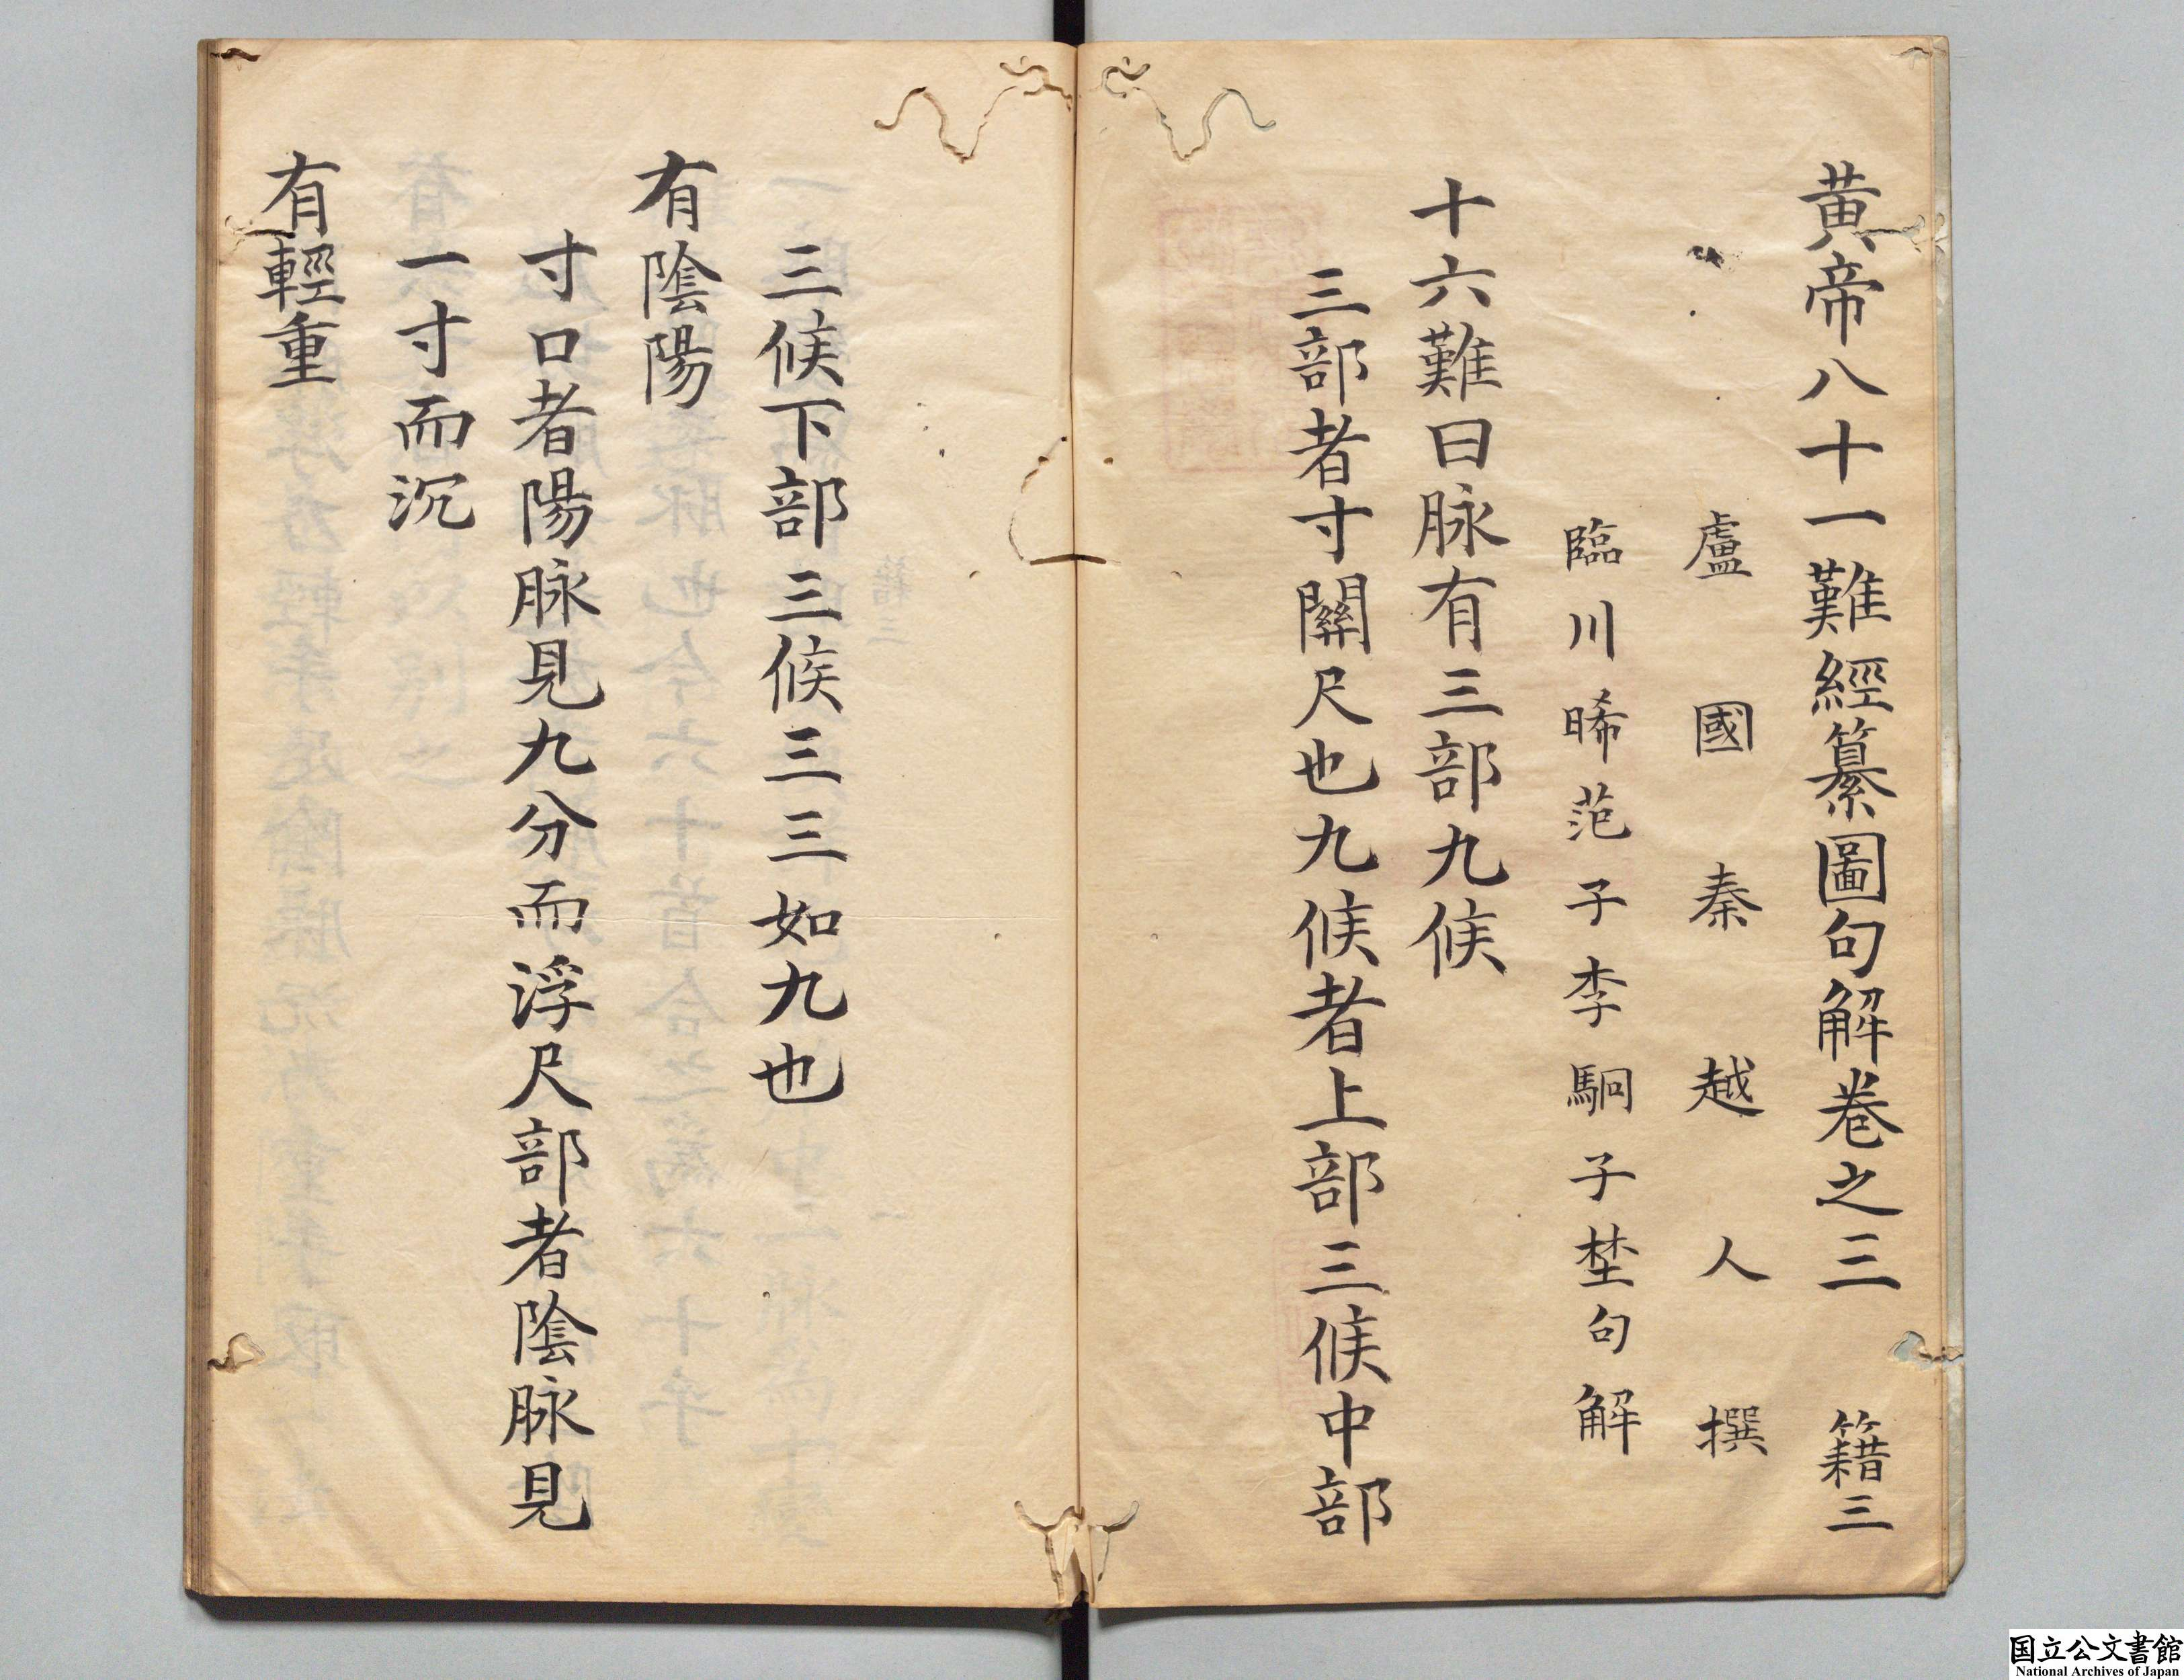 黃帝八十一難經纂圖句解卷之三　籍三
盧國秦越人撰
臨川晞范子李駉子埜句解
十六難曰脉有三部九候
三部者寸關尺也九候者上部三候中部
三候下部三候三三如九也
有陰陽
寸口者陽脉見九分而浮尺部者陰脉見
一寸而沉
有輕重
国立公文書館
National Archives of Japan